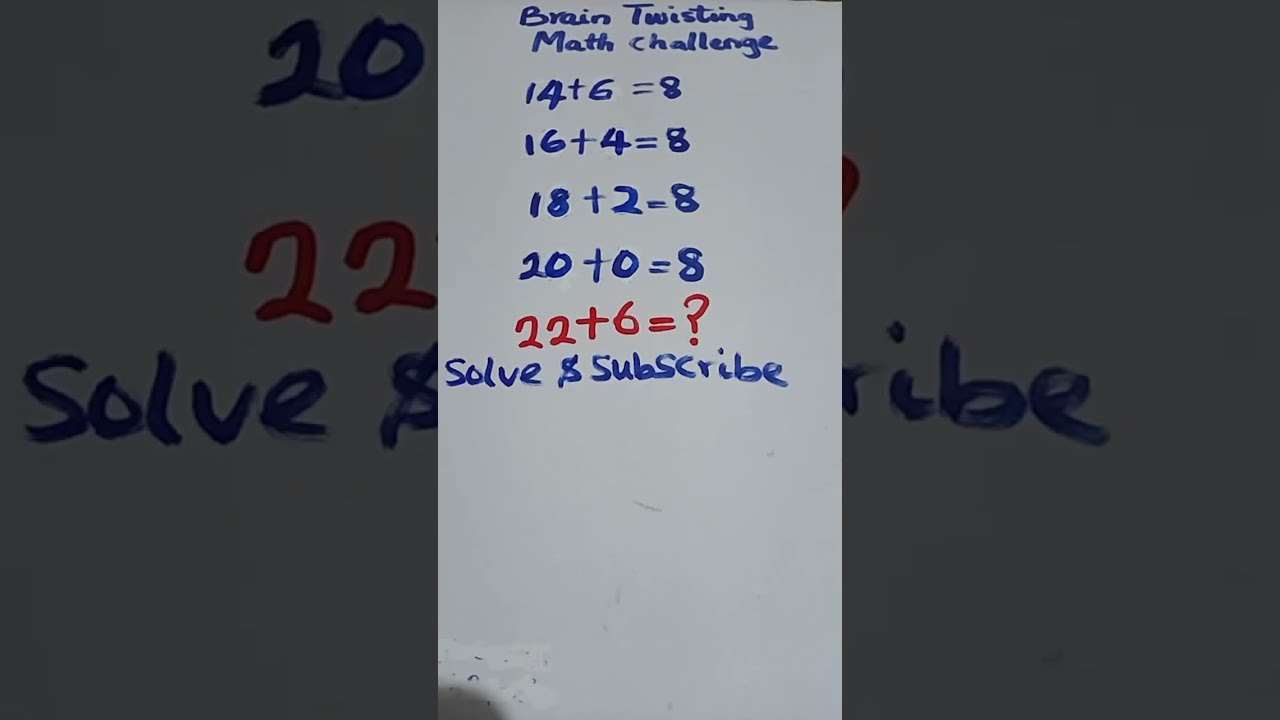 Brain Twisting
Math challenge
14+6=8
16+4=8
18+2=8
20+0=8
22+6=?
Solve & Subscribe